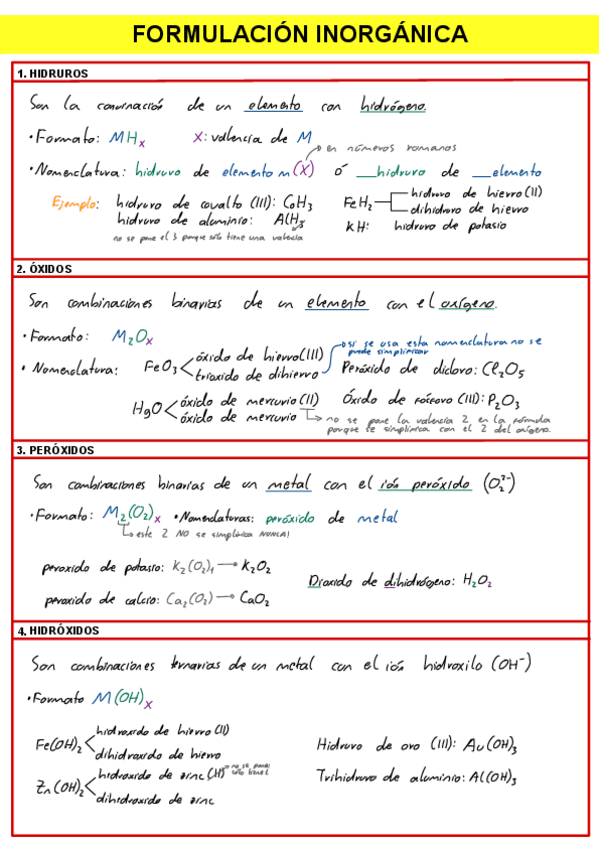 FORMULACIÓN INORGÁNICA
1. HIDRUROS
Son la convinación de un elemento con hidrógeno.
• Formato: MHx X: valencia de M
→ en números romanos
• Nomenclatura: hidruro de elemento m (X) ó __hidruro de __elemento
Ejemplo: hidruro de covalto (III): CoH3
hidruro de aluminio: AlH3
no se pone el 3 porque sólo tiene una valencia
FeH2 hidruro de hierro (II)
dihidruro de hierro
KH: hidruro de potasio
2. ÓXIDOS
Son combinaciones binarias de un elemento con el oxígeno.
• Formato: M2Ox
• Nomenclatura: FeO3 óxido de hierro (III)
trioxido de dihierro
→ si se usa esta nomenclatura no se
puede simplificar
Peróxido de dicloro: Cl2O5
HgO óxido de mercurio (II)
óxido de mercurio
Óxido de fósforo (III): P2O3
→ no se pone la valencia 2, en la fórmula
porque se simplifica con el 2 del oxígeno.
3. PERÓXIDOS
Son combinaciones binarias de un metal con el ión peróxido (O2²⁻)
• Formato: M2(O2)x • Nomenclaturas: peróxido de metal
→ este 2 NO se simplifica NUNCA!
peroxido de potasio: K2(O2)1 → K2O2
Dioxido de dihidrógeno: H2O2
peroxido de calcio: Ca2(O2) → CaO2
4. HIDRÓXIDOS
Son combinaciones ternarias de un metal con el ión hidroxilo (OH⁻)
• Formato M(OH)x
Fe(OH)2 hidroxido de hierro (II)
dihidroxido de hierro
Zn(OH)2 hidroxido de zinc (II) → no se pone
sólo tiene 1
dihidroxido de zinc
Hidruro de oro (III): Au(OH)3
Trihidruro de aluminio: Al(OH)3